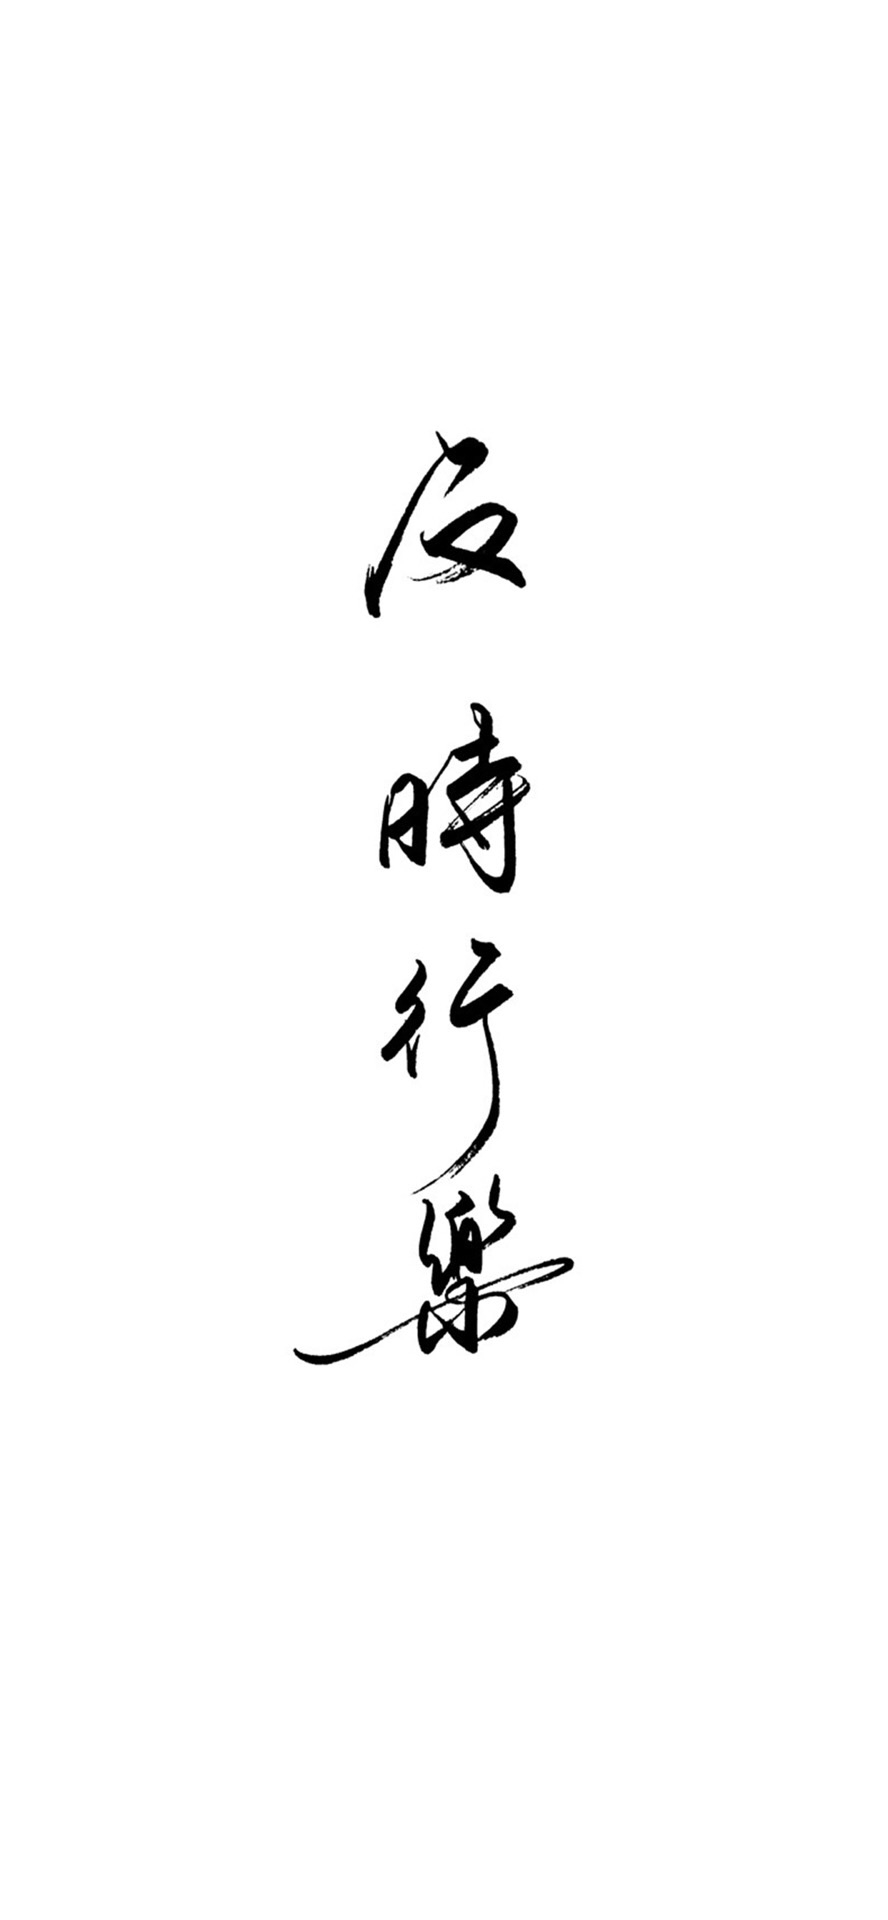 及
時
行
樂